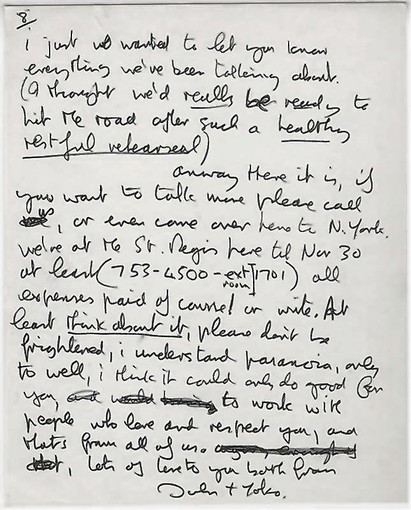 8
i just wanted to let you know
everything we've been talking about.
(I thought we'd really be ready to
hit the road after such a healthy
restful rehearseal)
anyway there it is, if
you want to talk more please call
us, or even come over here to N. York.
we're at the St. Regis here til Nov 30
at least (753-4500-ext 1701) all
room
expenses paid of course! or write. At
least think about it, please don't be
frightened, i understand paranoia, only
to well, i think it could only do good for
you, to work with
people who love and respect you, and
thats from all of us.
lots of love to you both from
John + Yoko.